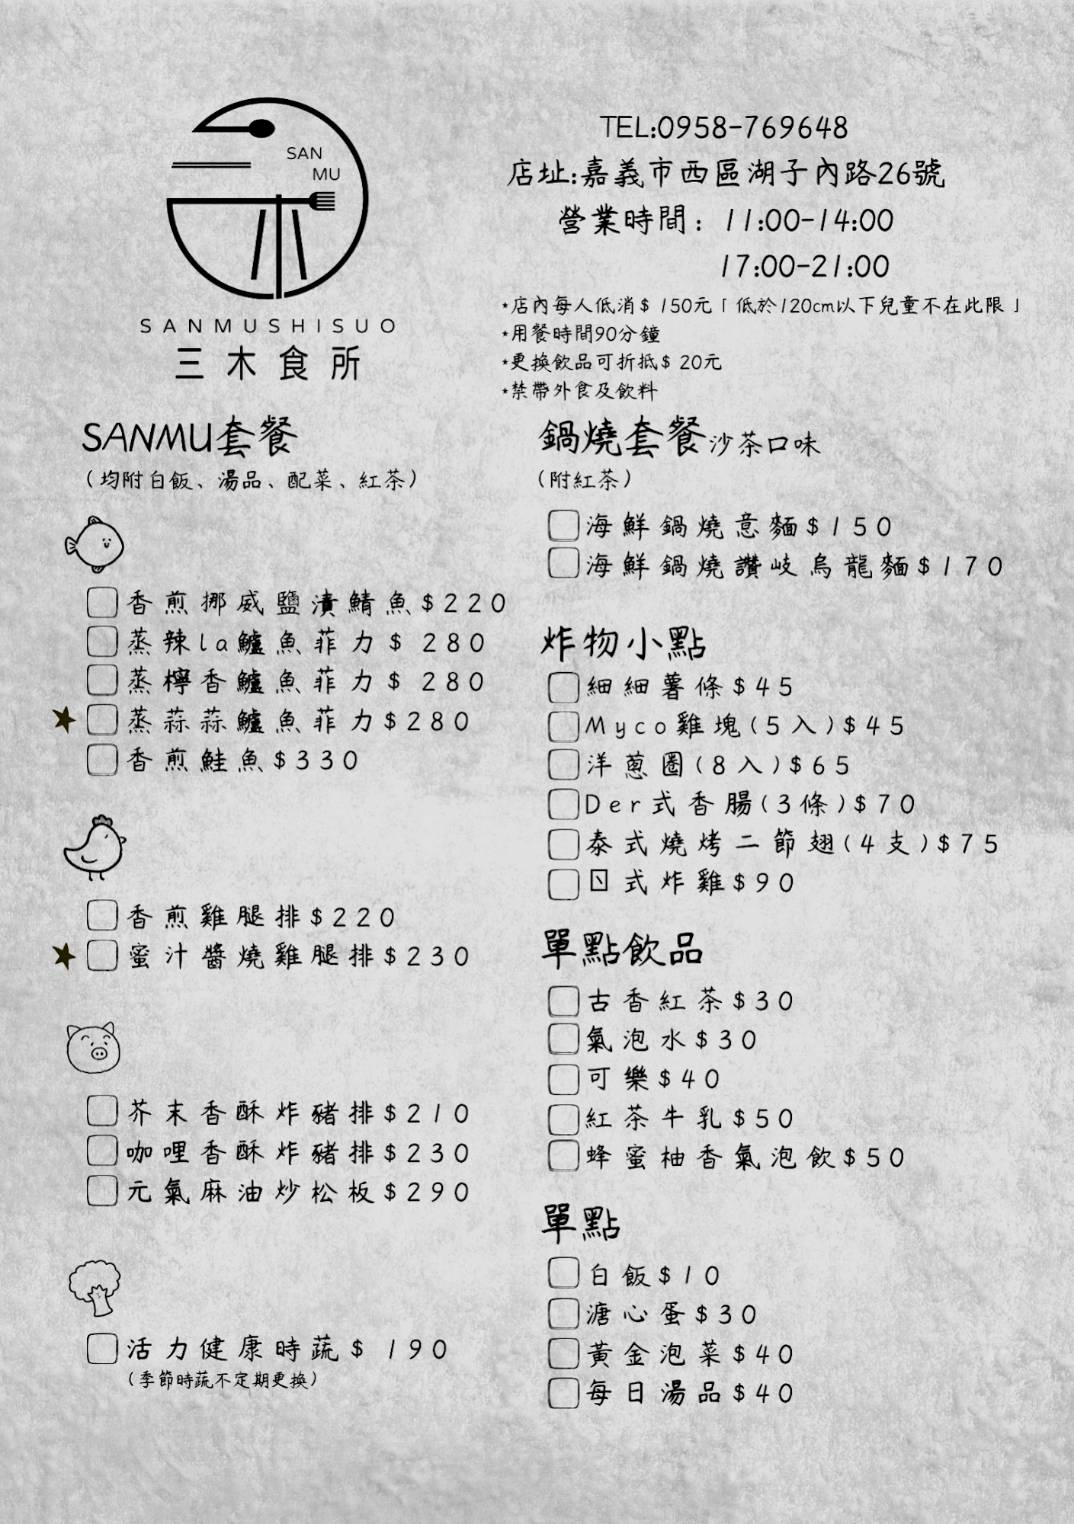 SAN
MU
SANMUSHISUO
三木食所
TEL:0958-769648
店址:嘉義市西區湖子內路26號
營業時間：11:00-14:00
17:00-21:00
*店內每人低消$150元「低於120cm以下兒童不在此限」
*用餐時間90分鐘
*更換飲品可折抵$20元
*禁帶外食及飲料
SANMU套餐
（均附白飯、湯品、配菜、紅茶）
香煎挪威鹽漬鯖魚$220
蒸辣la鱸魚菲力$280
蒸檸香鱸魚菲力$280
★蒸蒜蒜鱸魚菲力$280
香煎鮭魚$330
香煎雞腿排$220
★蜜汁醬燒雞腿排$230
芥末香酥炸豬排$210
咖哩香酥炸豬排$230
元氣麻油炒松板$290
活力健康時蔬$190
（季節時蔬不定期更換）
鍋燒套餐沙茶口味
（附紅茶）
海鮮鍋燒意麵$150
海鮮鍋燒讚岐烏龍麵$170
炸物小點
細細薯條$45
Myco雞塊(5入)$45
洋蔥圈(8入)$65
Der式香腸(3條)$70
泰式燒烤二節翅(4支)$75
日式炸雞$90
單點飲品
古香紅茶$30
氣泡水$30
可樂$40
紅茶牛乳$50
蜂蜜柚香氣泡飲$50
單點
白飯$10
溏心蛋$30
黃金泡菜$40
每日湯品$40